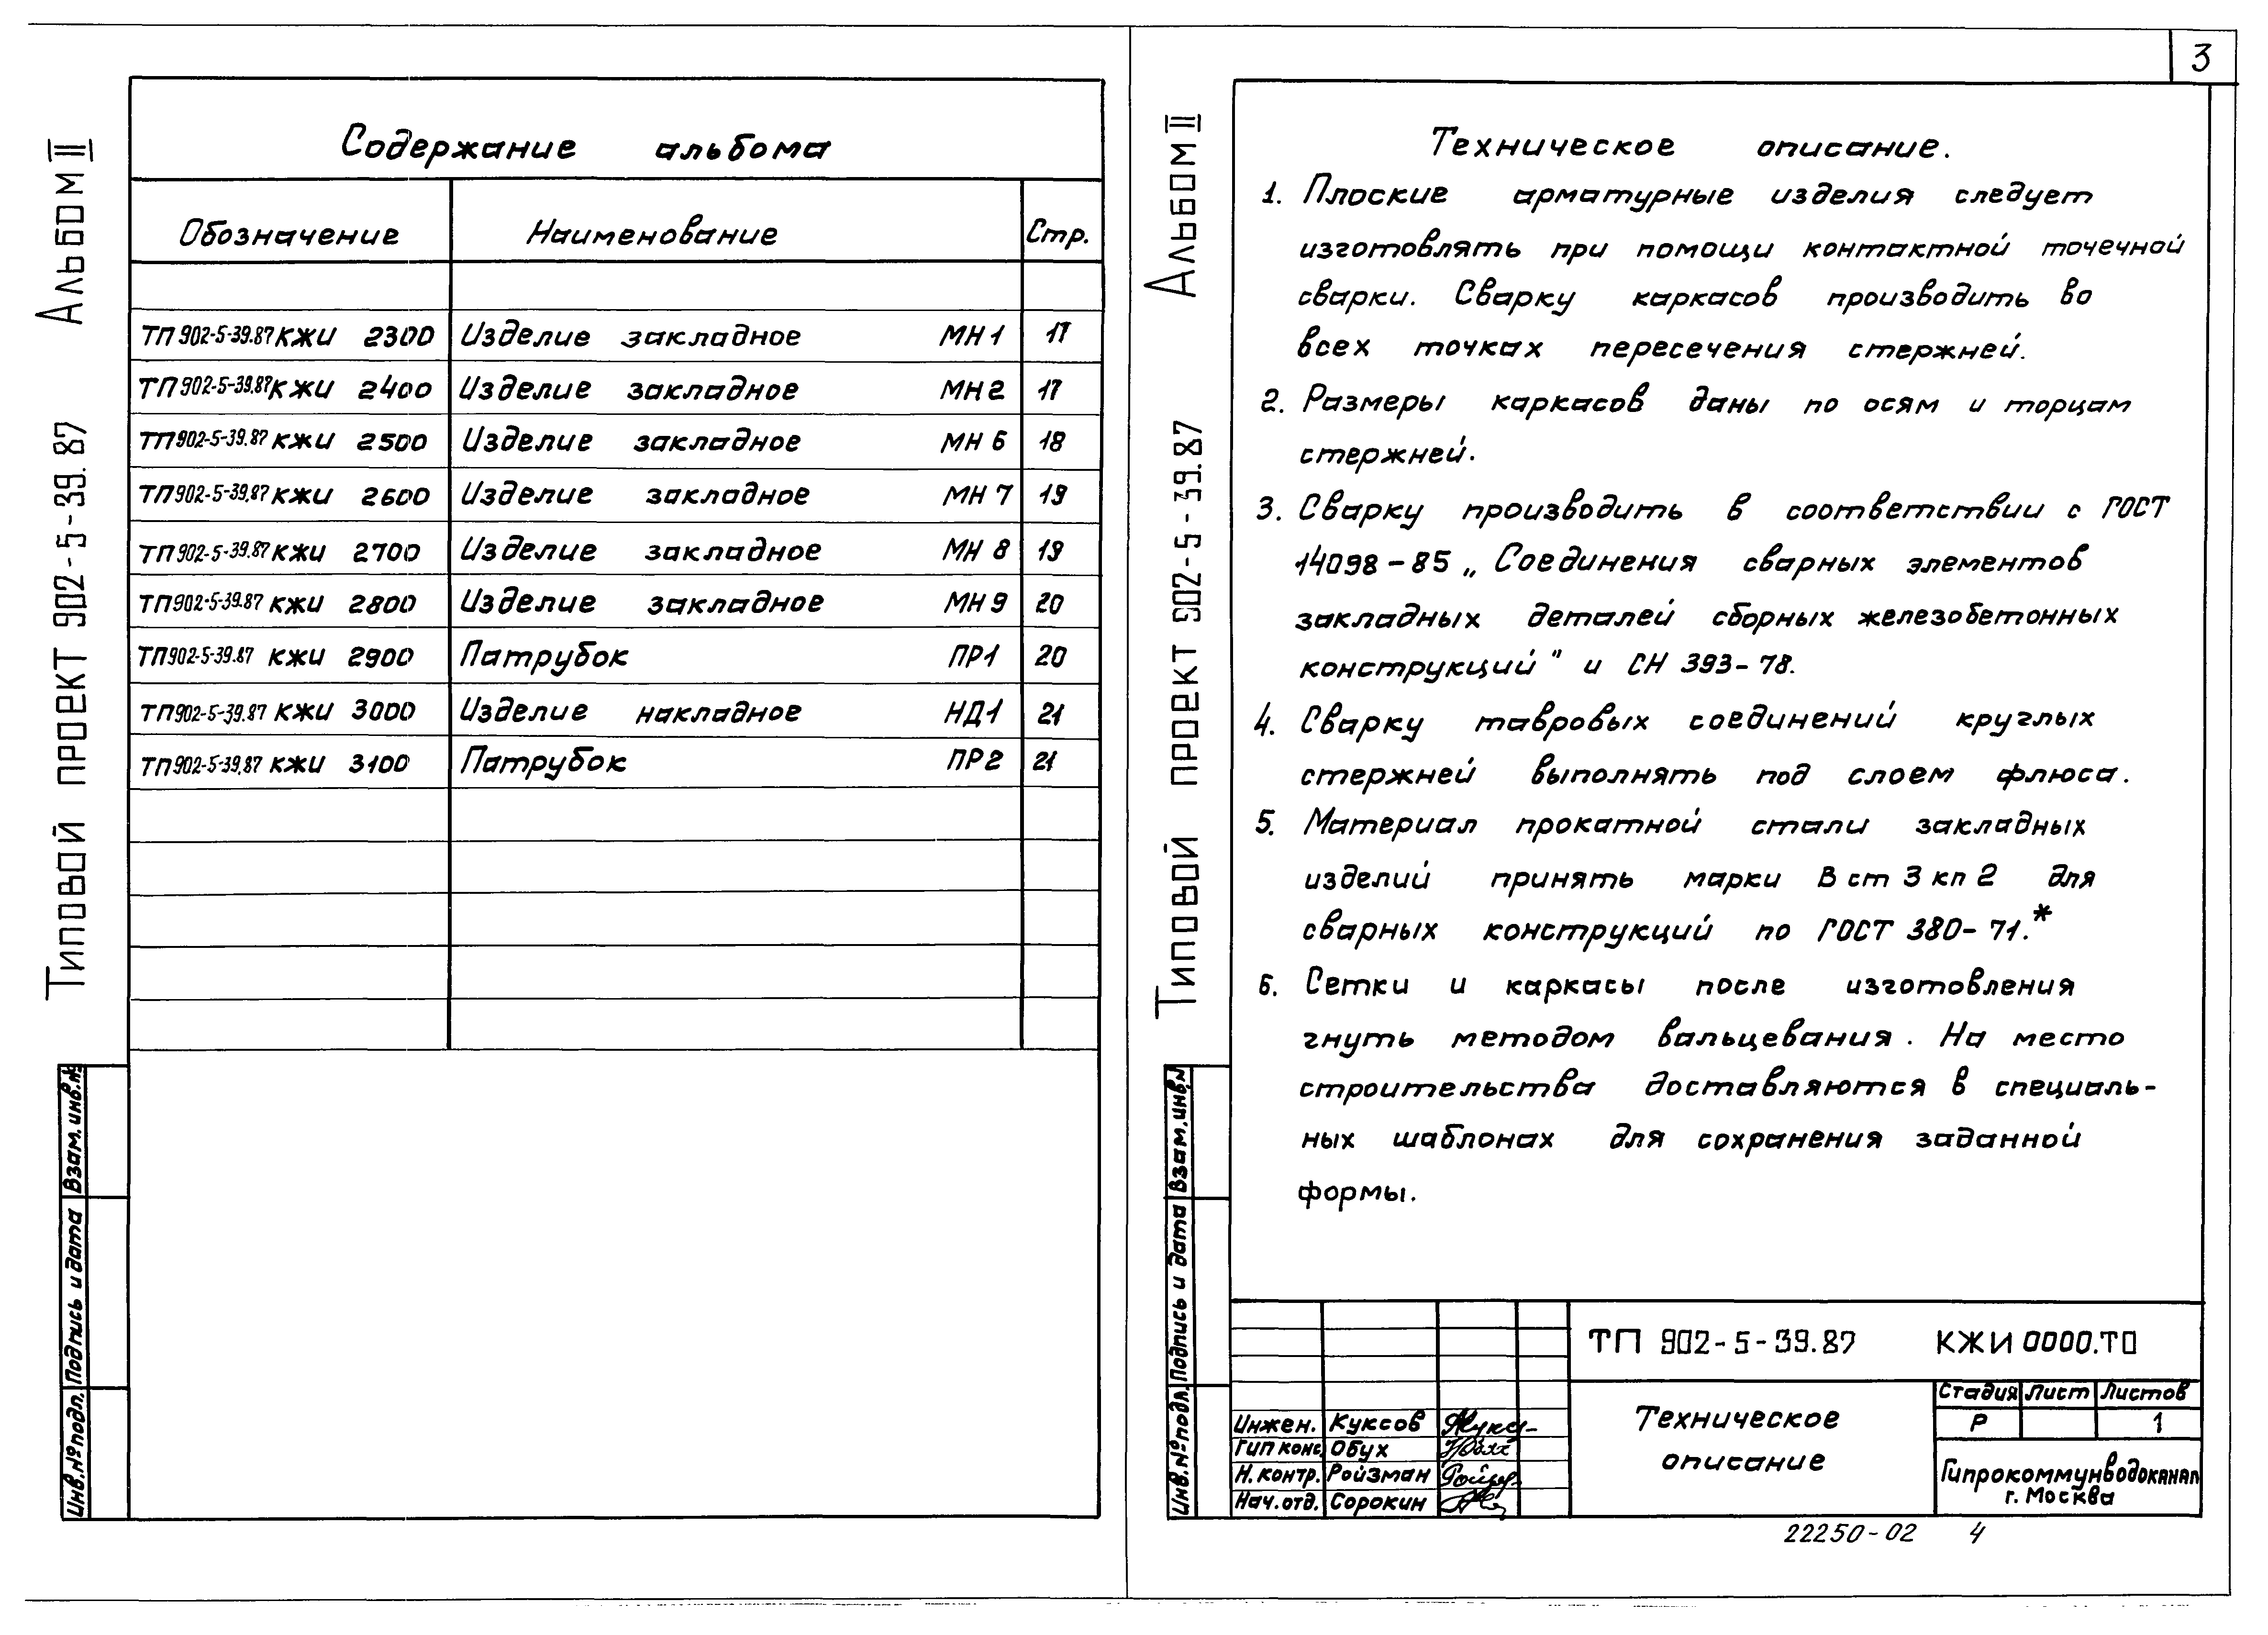 Альбом II
Типовой проект 902-5-39.87
Содержание альбома
Обозначение Наименование Стр.
ТП 902-5-39.87 КЖИ 2300 Изделие закладное МН 1 17
ТП 902-5-39.87 КЖИ 2400 Изделие закладное МН 2 17
ТП 902-5-39.87 КЖИ 2500 Изделие закладное МН 6 18
ТП 902-5-39.87 КЖИ 2600 Изделие закладное МН 7 19
ТП 902-5-39.87 КЖИ 2700 Изделие закладное МН 8 19
ТП 902-5-39.87 КЖИ 2800 Изделие закладное МН 9 20
ТП 902-5-39.87 КЖИ 2900 Патрубок ПР1 20
ТП 902-5-39.87 КЖИ 3000 Изделие накладное НД1 21
ТП 902-5-39.87 КЖИ 3100 Патрубок ПР2 21
Взам. инв. №
Подпись и дата
Инв. № подл.
3
Альбом II
Типовой проект 902-5-39.87
Техническое описание.
1. Плоские арматурные изделия следует
изготовлять при помощи контактной точечной
сварки. Сварку каркасов производить во
всех точках пересечения стержней.
2. Размеры каркасов даны по осям и торцам
стержней.
3. Сварку производить в соответствии с ГОСТ
14098-85 „Соединения сварных элементов
закладных деталей сборных железобетонных
конструкций" и СН 393-78.
4. Сварку тавровых соединений круглых
стержней выполнять под слоем флюса.
5. Материал прокатной стали закладных
изделий принять марки В ст 3 кп 2 для
сварных конструкций по ГОСТ 380-71.*
6. Сетки и каркасы после изготовления
гнуть методом вальцевания. На место
строительства доставляются в специаль-
ных шаблонах для сохранения заданной
формы.
Взам. инв. №
Подпись и дата
Инв. № подл.
ТП 902-5-39.87 КЖИ 0000.ТО
Техническое
описание
Стадия Лист Листов
Р 1
Гипрокоммунводоканал
г. Москва
Инжен. Куксов
Гип конс. Обух
Н. контр. Ройзман
Нач. отд. Сорокин
22250-02 4